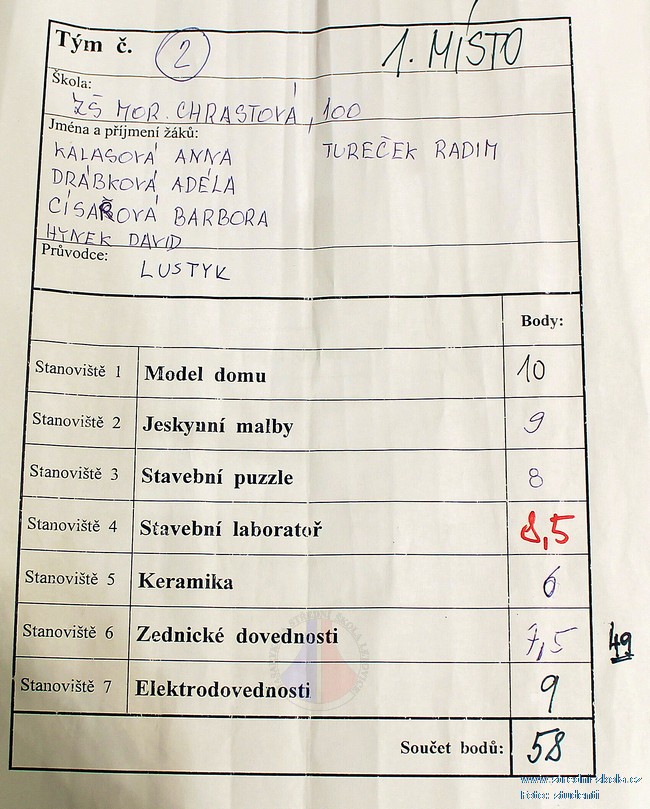 Tým č. 2 1. MÍSTO
Škola:
ZŠ MOR. CHRASTOVÁ, 100
Jména a příjmení žáků:
KALASOVÁ ANNA TUREČEK RADIM
DRÁBKOVÁ ADÉLA
CÍSAŘOVÁ BARBORA
HYNEK DAVID
Průvodce:
LUSTYK
Body:
Stanoviště 1 Model domu 10
Stanoviště 2 Jeskynní malby 9
Stanoviště 3 Stavební puzzle 8
Stanoviště 4 Stavební laboratoř 8,5
Stanoviště 5 Keramika 6
Stanoviště 6 Zednické dovednosti 7,5 49
Stanoviště 7 Elektrodovednosti 9
Součet bodů: 58
fotos: studenti